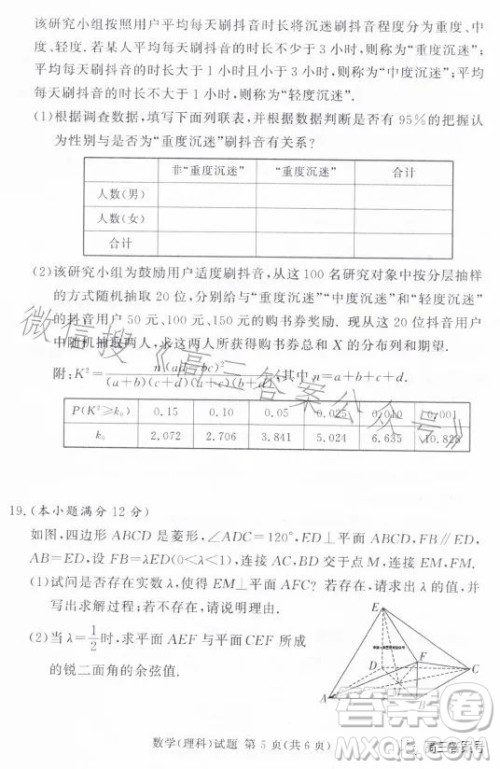 该研究小组按照用户平均每天刷抖音时长将沉迷刷抖音程度分为重度、中
度、轻度.若某人平均每天刷抖音的时长不少于3小时,则称为“重度沉迷”;
平均每天刷抖音的时长大于1小时且小于3小时,则称为“中度沉迷”;平均
每天刷抖音的时长不大于1小时,则称为“轻度沉迷”.
(1)根据调查数据,填写下面列联表,并根据数据判断是否有95%的把握认
为性别与是否为“重度沉迷”刷抖音有关系?
非“重度沉迷” “重度沉迷” 合计
人数(男)
人数(女)
合计
(2)该研究小组为鼓励用户适度刷抖音,从这100名研究对象中按分层抽样
的方式随机抽取20位,分别给与“重度沉迷”“中度沉迷”和“轻度沉迷”
的抖音用户50元、100元、150元的购书券奖励.现从这20位抖音用户
中随机抽取两人,求这两人所获得购书券总和X的分布列和期望.
附:K²=n(ad-bc)²/(a+b)(c+d)(a+c)(b+d),其中n=a+b+c+d.
P(K²≥k₀) 0.15 0.10 0.05 0.025 0.010 0.001
k₀ 2.072 2.706 3.841 5.024 6.635 10.828
微信搜《高三答案公众号》
19.(本小题满分12分)
如图,四边形ABCD是菱形,∠ADC=120°,ED⊥平面ABCD,FB∥ED,
AB=ED,设FB=λED(0<λ<1),连接AC,BD交于点M,连接EM.
(1)试问是否存在实数λ,使得EM⊥平面AFC?若存在,请求出λ的值,并
写出求解过程;若不存在,请说明理由.
(2)当λ=1/2时,求平面AEF与平面CEF所成
的锐二面角的余弦值.
E
F
D
C
M
A
B
数学(理科)试题 第5页(共6页)